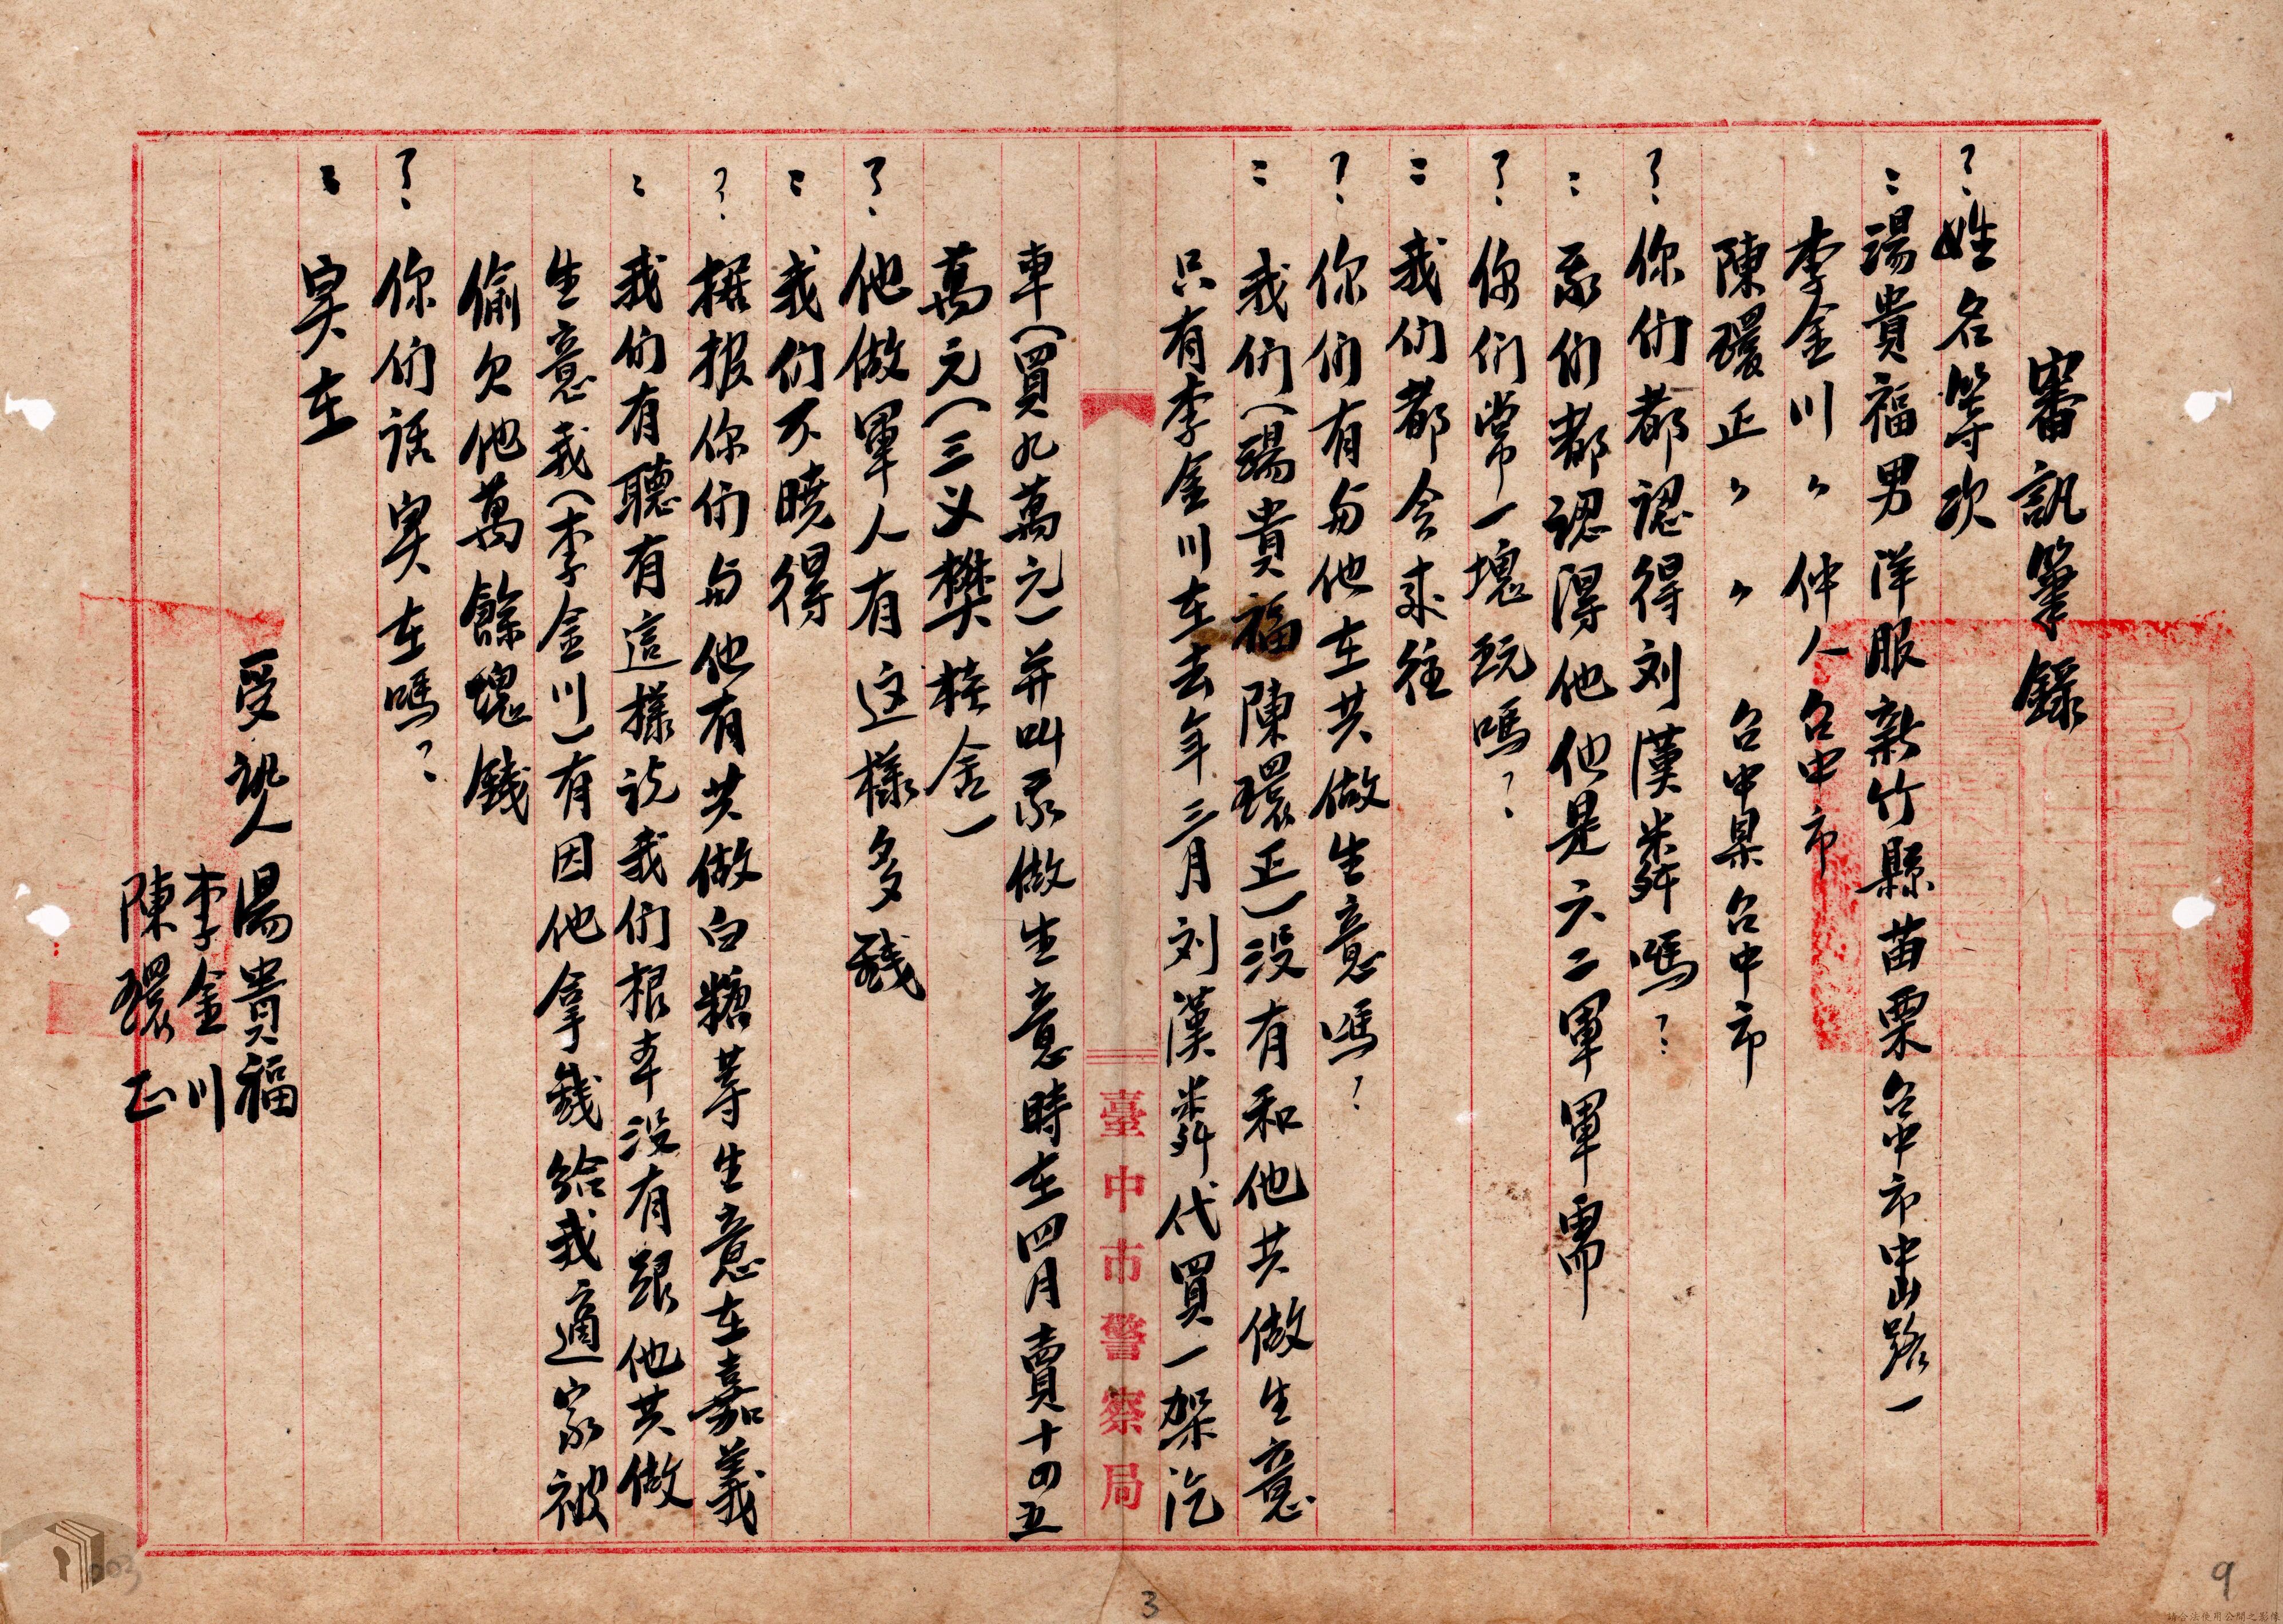 審訊筆錄
？姓名等次
：湯貴福男 洋服新竹縣苗栗台中市中山路一
李金川〃仲人台中市
陳環正〃〃台中县台中市
？你们都認得刘漢粦嗎？
：我们都認得他他是六二軍軍需
？你们常一塊玩嗎？
：我们都会来往
？你们有与他在共做生意嗎？
：我们（湯貴福 陳環正）没有和他共做生意
只有李金川在去年三月刘漢粦代買一架汽
車（買九萬元）并叫我做生意時在四月賣十四五
萬元（三义樊桂舍）
？他做軍人有这樣多錢
：我们不曉得
？据报你们与他有共做白糖等生意在嘉義
：我们有聽有這樣说我们根本没有跟他共做
生意我（李金川）有因他拿錢給我適家被
偷欠他萬餘塊錢
？你们话实在嗎？
：实在
受訊人 湯貴福
李金川
陳環正
臺中市警察局
3
9
003
請合法使用公開之影像